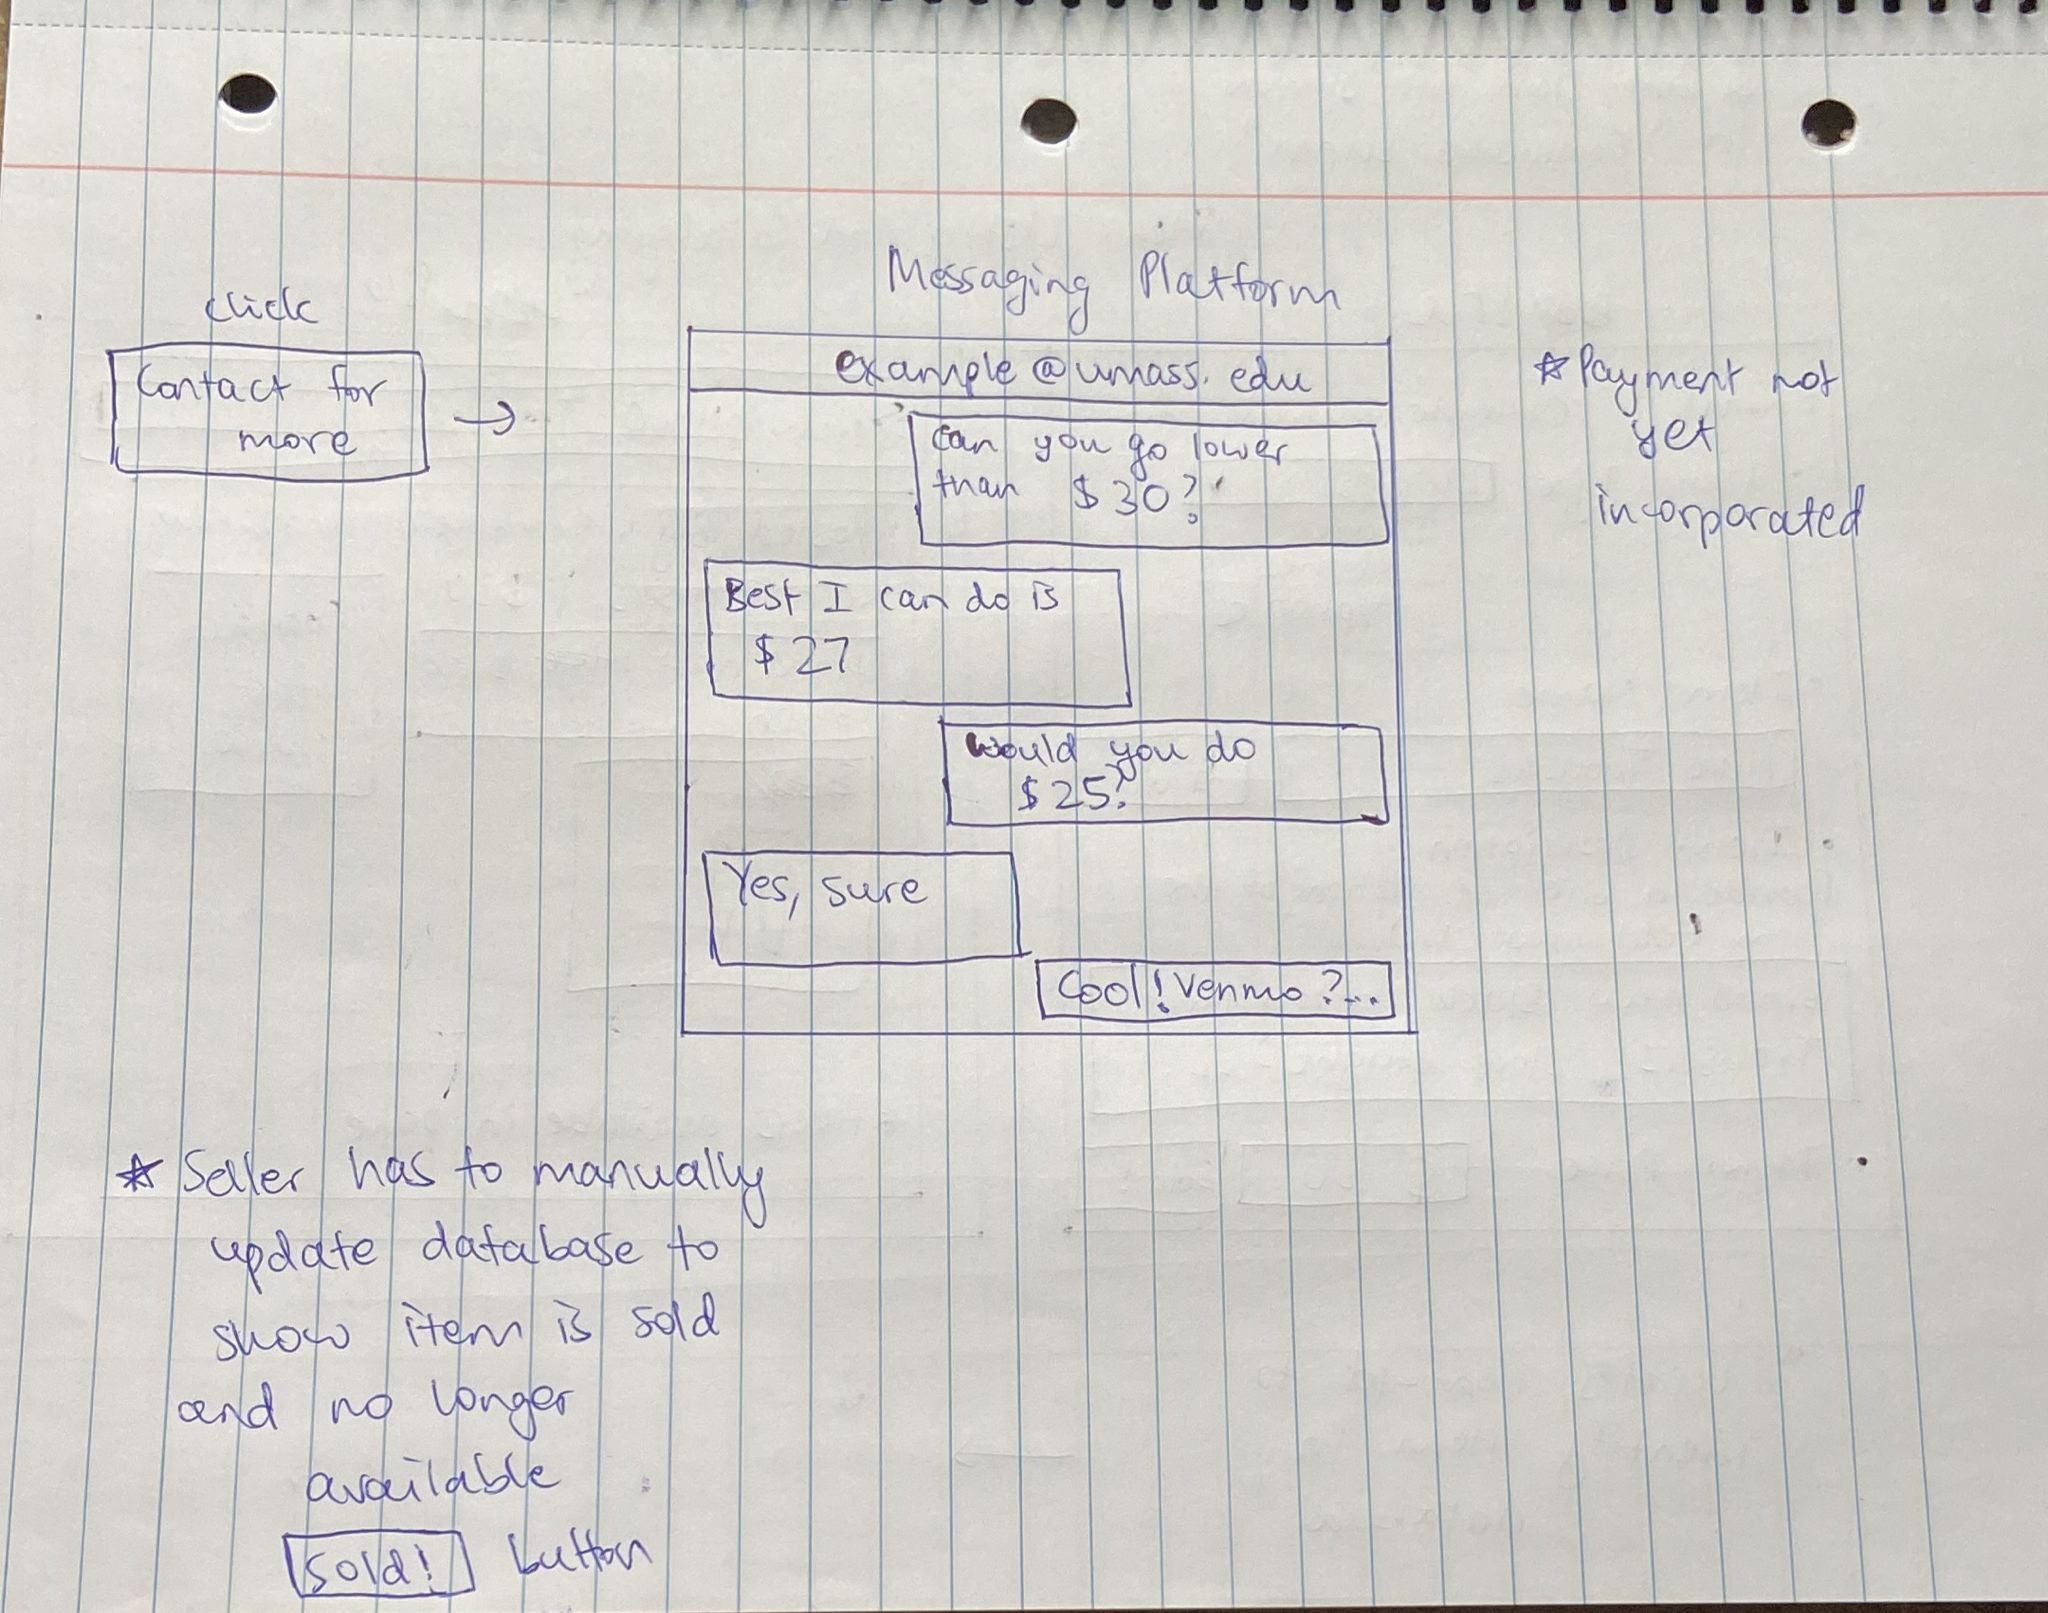 click
Contact for
more
→
Messaging Platform
example@umass.edu
Can you go lower
than $30?
Best I can do is
$27
Would you do
$25?
Yes, sure
Cool! Venmo?...
☆ Payment not
yet
incorporated
☆ Seller has to manually
update database to
show item is sold
and no longer
available
sold! button